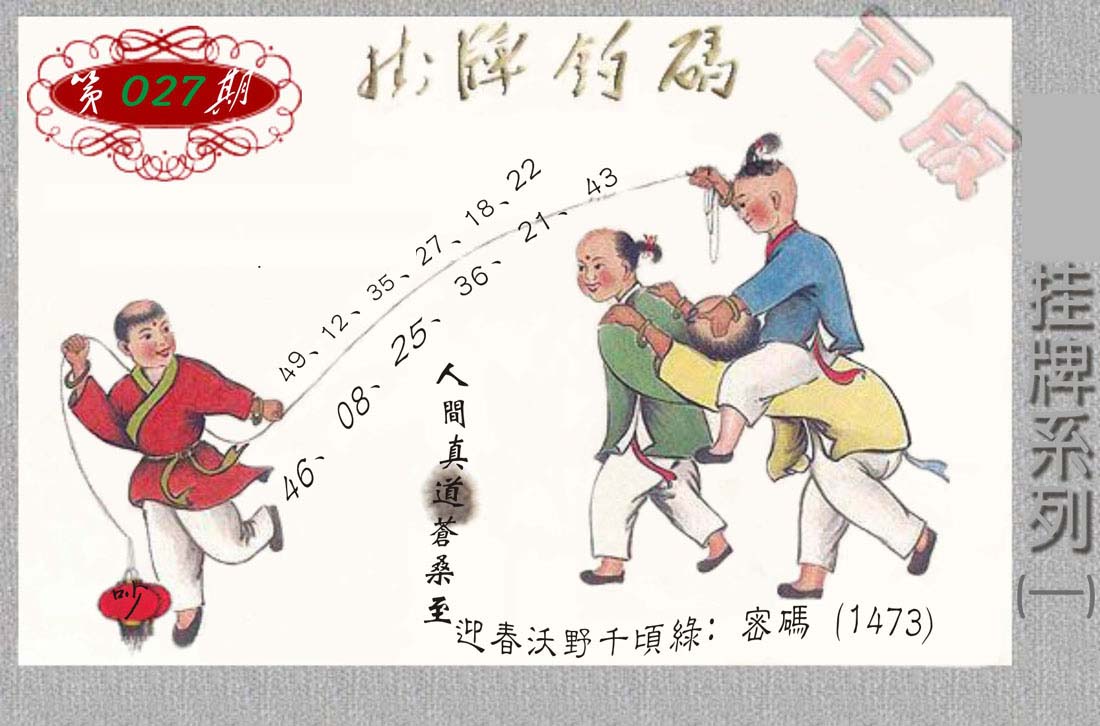 第027期
掛牌釣碼
正版
49、12、35、27、18、22
46、08、25、36、21、43
人間真道蒼桑至
迎春沃野千頃綠：密碼(1473)
吵
挂牌系列(一)